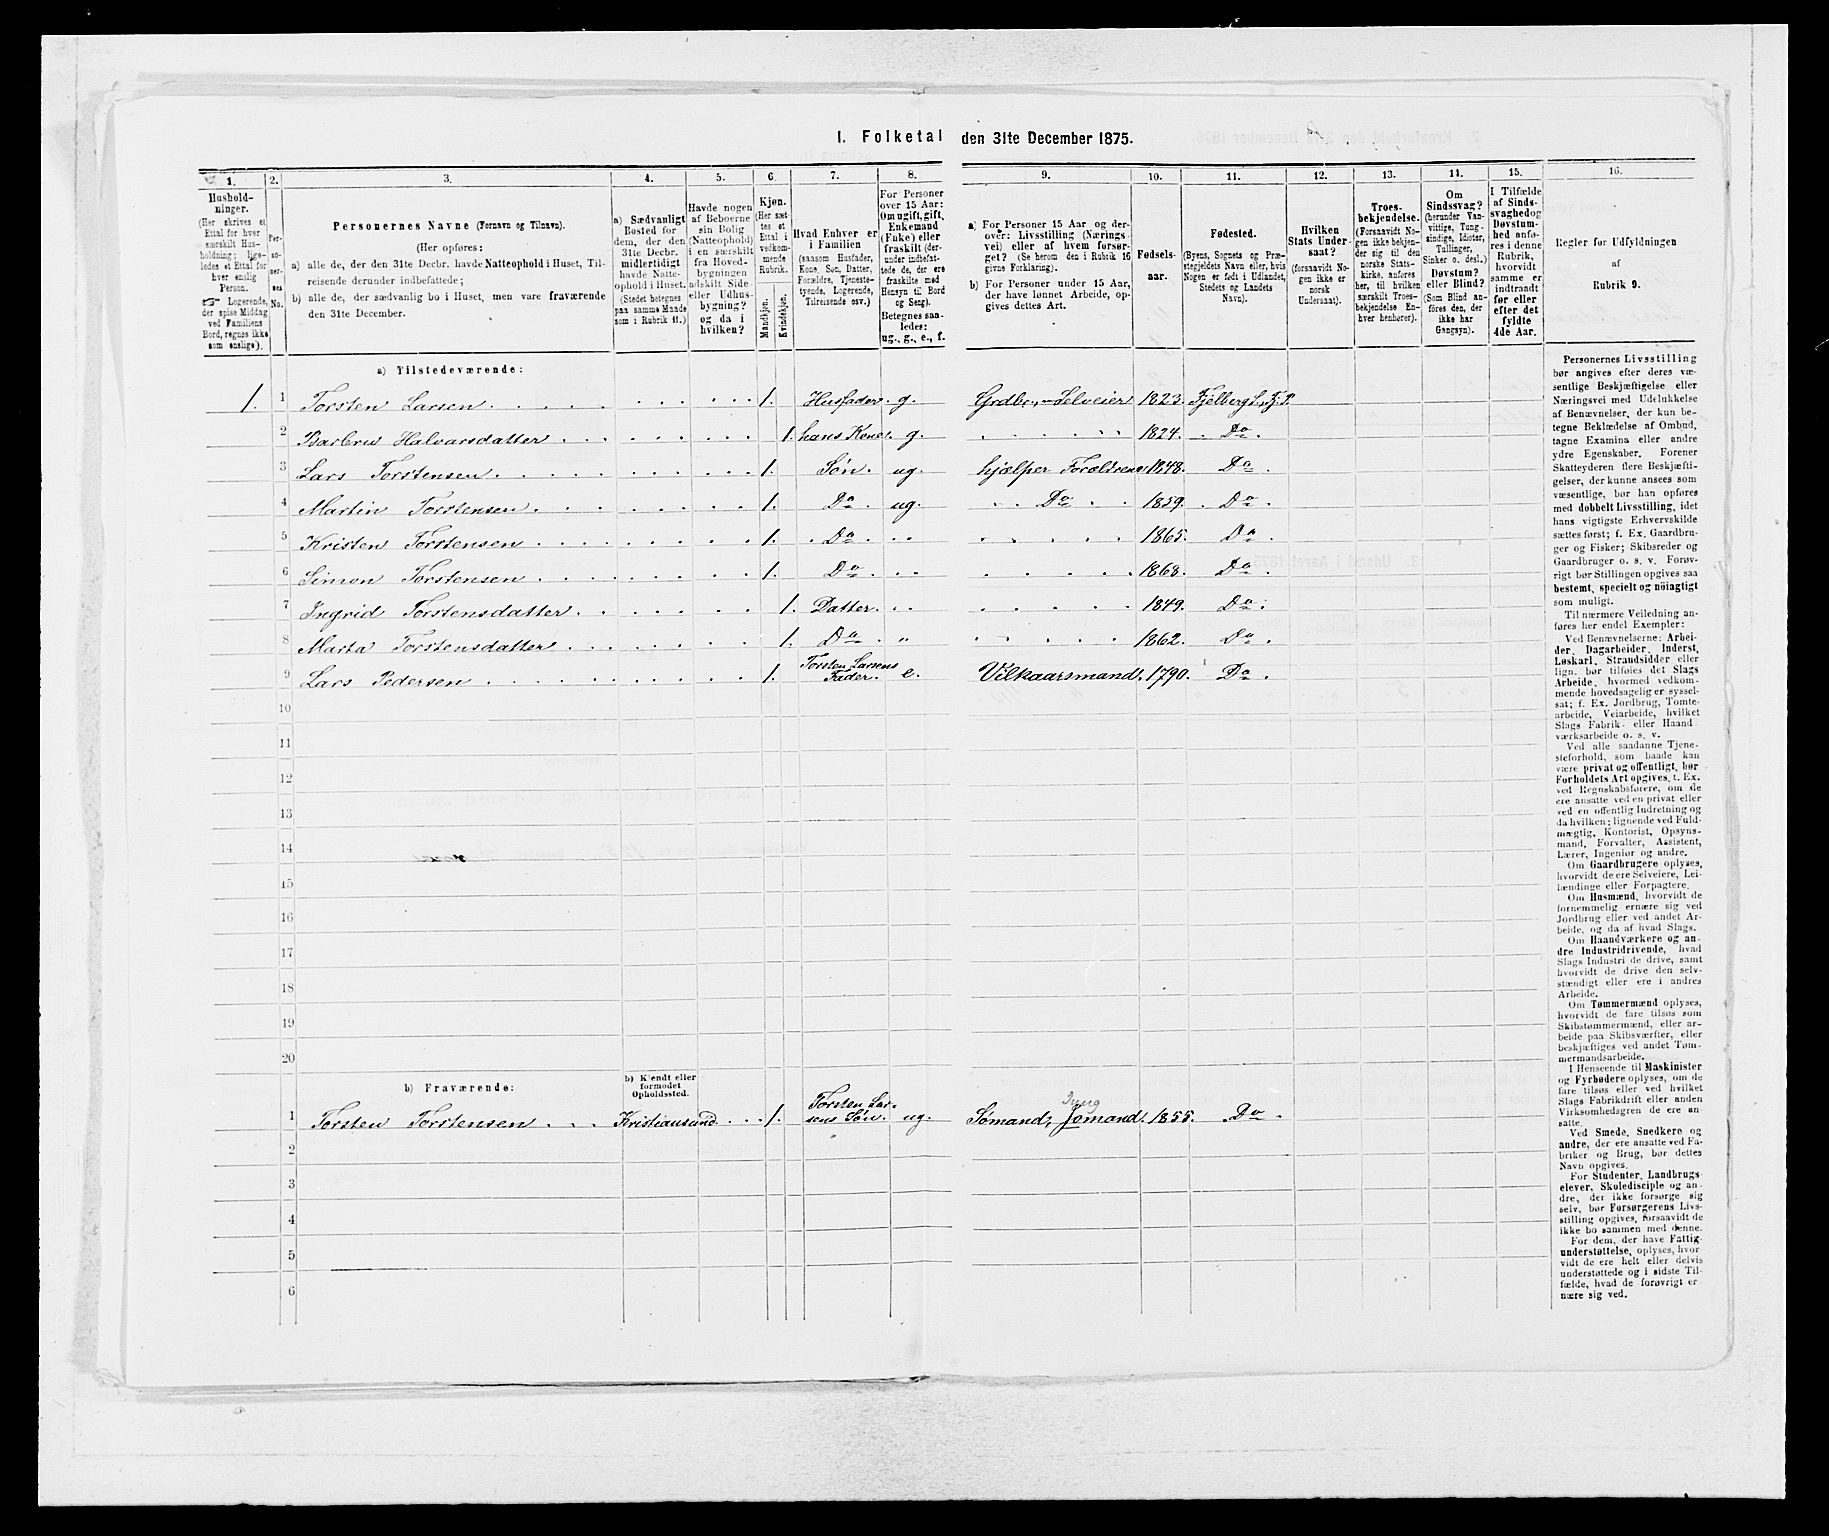 1. Folketal den 31te December 1875.
1. 2. 3. 4. 5. 6. 7. 8. 9. 10. 11. 12. 13. 14. 15. 16.
Hushold-
ninger.
(Her skrives et
Ettal for hver
særskilt Hus-
holdning; lige-
ledes et Ettal for
hver enslig
Person.
☞ Logerende,
der spise Middag
ved Familiens
Bord, regnes ikke
som enslige).
Per-
so-
ner-
nes
No.
Personernes Navne (Fornavn og Tilnavn).
(Her opføres:
a) alle de, der den 31te Decbr. havde Natteophold i Huset, Til-
reisende derunder indbefattede;
b) alle de, der sædvanlig bo i Huset, men vare fraværende
den 31te December.
a) Sædvanligt
Bosted for
dem, der den
31te Decbr.
midlertidigt
havde Natte-
ophold i Huset.
(Stedet betegnes
paa samme Maade
som i Rubrik 11.)
Havde nogen
af Beboerne
sin Bolig
(Natteophold)
i en særskilt
fra Hoved-
bygningen
adskilt Side-
eller Udhus-
bygning?
og da i
hvilken?
Kjøn.
(Her sæt-
tes et
Ettal i
vedkom-
mende
Rubrik.
Mandkjøn.
Kvindekjøn.
Hvad Enhver er
i Familien
(saasom Husfader,
Kone, Søn, Datter,
Forældre, Tjeneste-
tyende, Logerende,
Tilreisende osv.)
For Personer
over 15 Aar:
Om ugift, gift,
Enkemand
(Enke) eller
fraskilt (der-
under indbefat-
tede de, der ere
fraskilte med
Hensyn til Bord
og Seng).
Betegnes saa-
ledes:
ug., g., e., f.
a) For Personer 15 Aar og der-
over: Livsstilling (Nærings-
vei) eller af hvem forsør-
get? (Se herom den i Rubrik 16
givne Forklaring).
b) For Personer under 15 Aar,
der have lønnet Arbeide, op-
gives dettes Art.
Fødsels-
aar.
Fødested.
(Byens, Sognets og Præ-
stegjeldets Navn eller, hvis
Nogen er født i Udlandet,
Stedets og Landets
Navn).
Hvilken
Stats Under-
saat?
(forsaavidt No-
gen ikke er
norsk
Undersaat).
Troes-
bekjendelse.
(Forsaavidt No-
gen ikke bekjen-
der sig til den
norske Stats-
kirke, anføres
her, til hvilken
særskilt Troes-
bekjendelse En-
hver henhører).
Om
Sindssvag?
(herunder Van-
vittige, Tung-
sindige, Idioter,
Tullinger,
Sinker o. desl.)
Døvstum?
eller Blind?
(Som Blind an-
føres den, der
ikke har
Gangsyn).
I Tilfælde
af Sinds-
svaghed og
Døvstum-
hed anfø-
res i denne
Rubrik,
hvorvidt
samme er
indtraadt
før eller
efter det
fyldte
4de Aar.
Regler for Udfyldningen
af
Rubrik 9.
a) Tilstedeværende:
1. 1 Torsten Larsen 1. Husfader. g. Grdbr., Selveier 1823. Fjelberg S., Fj. P.
2 Barbru Halvarsdatter 1. hans Kone. g. 1824. Do.
3 Lars Torstensen 1. Søn. ug. hjælper Forældrene 1848. Do.
4 Martin Torstensen 1. Do. ug. Do 1859. Do
5 Kristen Torstensen 1. Do 1865. Do
6 Simon Torstensen 1. Do. 1868. Do.
7 Ingrid Torstensdatter 1. Datter. 1849. Do.
8 Marta Torstensdatter 1. Do. 1862. Do.
9 Lars Pedersen 1. Torsten Larsens Fader. e. Vilkaarsmand. 1790. Do.
10
11
12
13
14
15
16
17
18
19
20
b) Fraværende:
b) Kjendt eller
formodet
Opholdssted.
1 Torsten Torstensen Kristiansund 1. Torsten Larsens Søn. ug. Sømand, Jomand. 1855. Do.
2
3
4
5
6
Personernes Livsstilling
bør angives efter deres væ-
sentlige Beskjæftigelse eller
Næringsvei med Udelukkelse
af Benævnelser, der kun be-
tegne Beklædelse af Ombud,
tagne Examina eller andre
ydre Egenskaber. Forener
Skatteyderen flere Beskjæfti-
gelser, der kunne ansees som
væsentlige, bør han opføres
med dobbelt Livsstilling, idet
hans vigtigste Erhvervskilde
sættes først; f. Ex. Gaardbru-
ger og Fisker; Skibsreder og
Gaardbruger o. s. v. Forøv-
rigt bør Stillingen opgives saa
bestemt, specielt og nöiagtigt
som muligt.
Til nærmere Veiledning an-
føres her endel Exempler:
Ved Benævnelserne: Arbei-
der, Dagarbeider, Inderst,
Løskarl, Strandsidder eller
lign. bør tilføies det Slags
Arbeide, hvormed vedkom-
mende hovedsagelig er syssel-
sat; f. Ex. Jordbrug, Tomte-
arbeide, Veiarbeide, hvilket
Slags Fabrik- eller Haand-
værksarbeide o. s. v.
Ved alle saadanne Tjene-
steforhold, som baade kan
være privat og offentligt, bør
Forholdets Art opgives, t. Ex.
ved Regnskabsførere, om de
ere ansatte ved en privat eller
ved en offentlig Indretning og
da hvilken; lignende ved Fuld-
mægtig, Kontorist, Opsyns-
mand, Forvalter, Assistent,
Lærer, Ingeniør og andre.
Om Gaardbrugere oplyses,
hvorvidt de ere Selveiere, Lei-
lændinge eller Forpagtere.
Om Husmænd, hvorvidt de
fornemmelig ernære sig ved
Jordbrug eller ved andet Ar-
beide, og da af hvad Slags.
Om Haandværkere og an-
dre Industridrivende, hvad
Slags Industri de drive, samt
hvorvidt de drive den selv-
stændigt eller ere i andres
Arbeide.
Om Tømmermænd oplyses,
hvorvidt de fare tilsøs som
Skibstømmermænd, eller ar-
beide paa Skibsværfter, eller
beskjæftiges ved andet Tøm-
mermandsarbeide.
I Henseende til Maskinister
og Fyrbødere oplyses, om de
fare tilsøs eller ved hvilket
Slags Fabrikdrift eller anden
Virksomhedsgren de ere an-
satte.
Ved Smede, Snedkere og
andre, der ere ansatte ved Fa-
briker og Brug, bør dettes
Navn opgives.
For Studenter, Landbrugs-
elever, Skoledisciple og an-
dre, der ikke forsørge sig
selv, bør Forsørgerens Livs-
stilling opgives, forsaavidt de
ikke bo sammen med denne.
For dem, der have Fattig-
understøttelse, oplyses, hvor-
vidt de ere helt eller delvis
understøttede og i sidste Til-
fælde, hvad de forøvrigt er
nære sig ved.